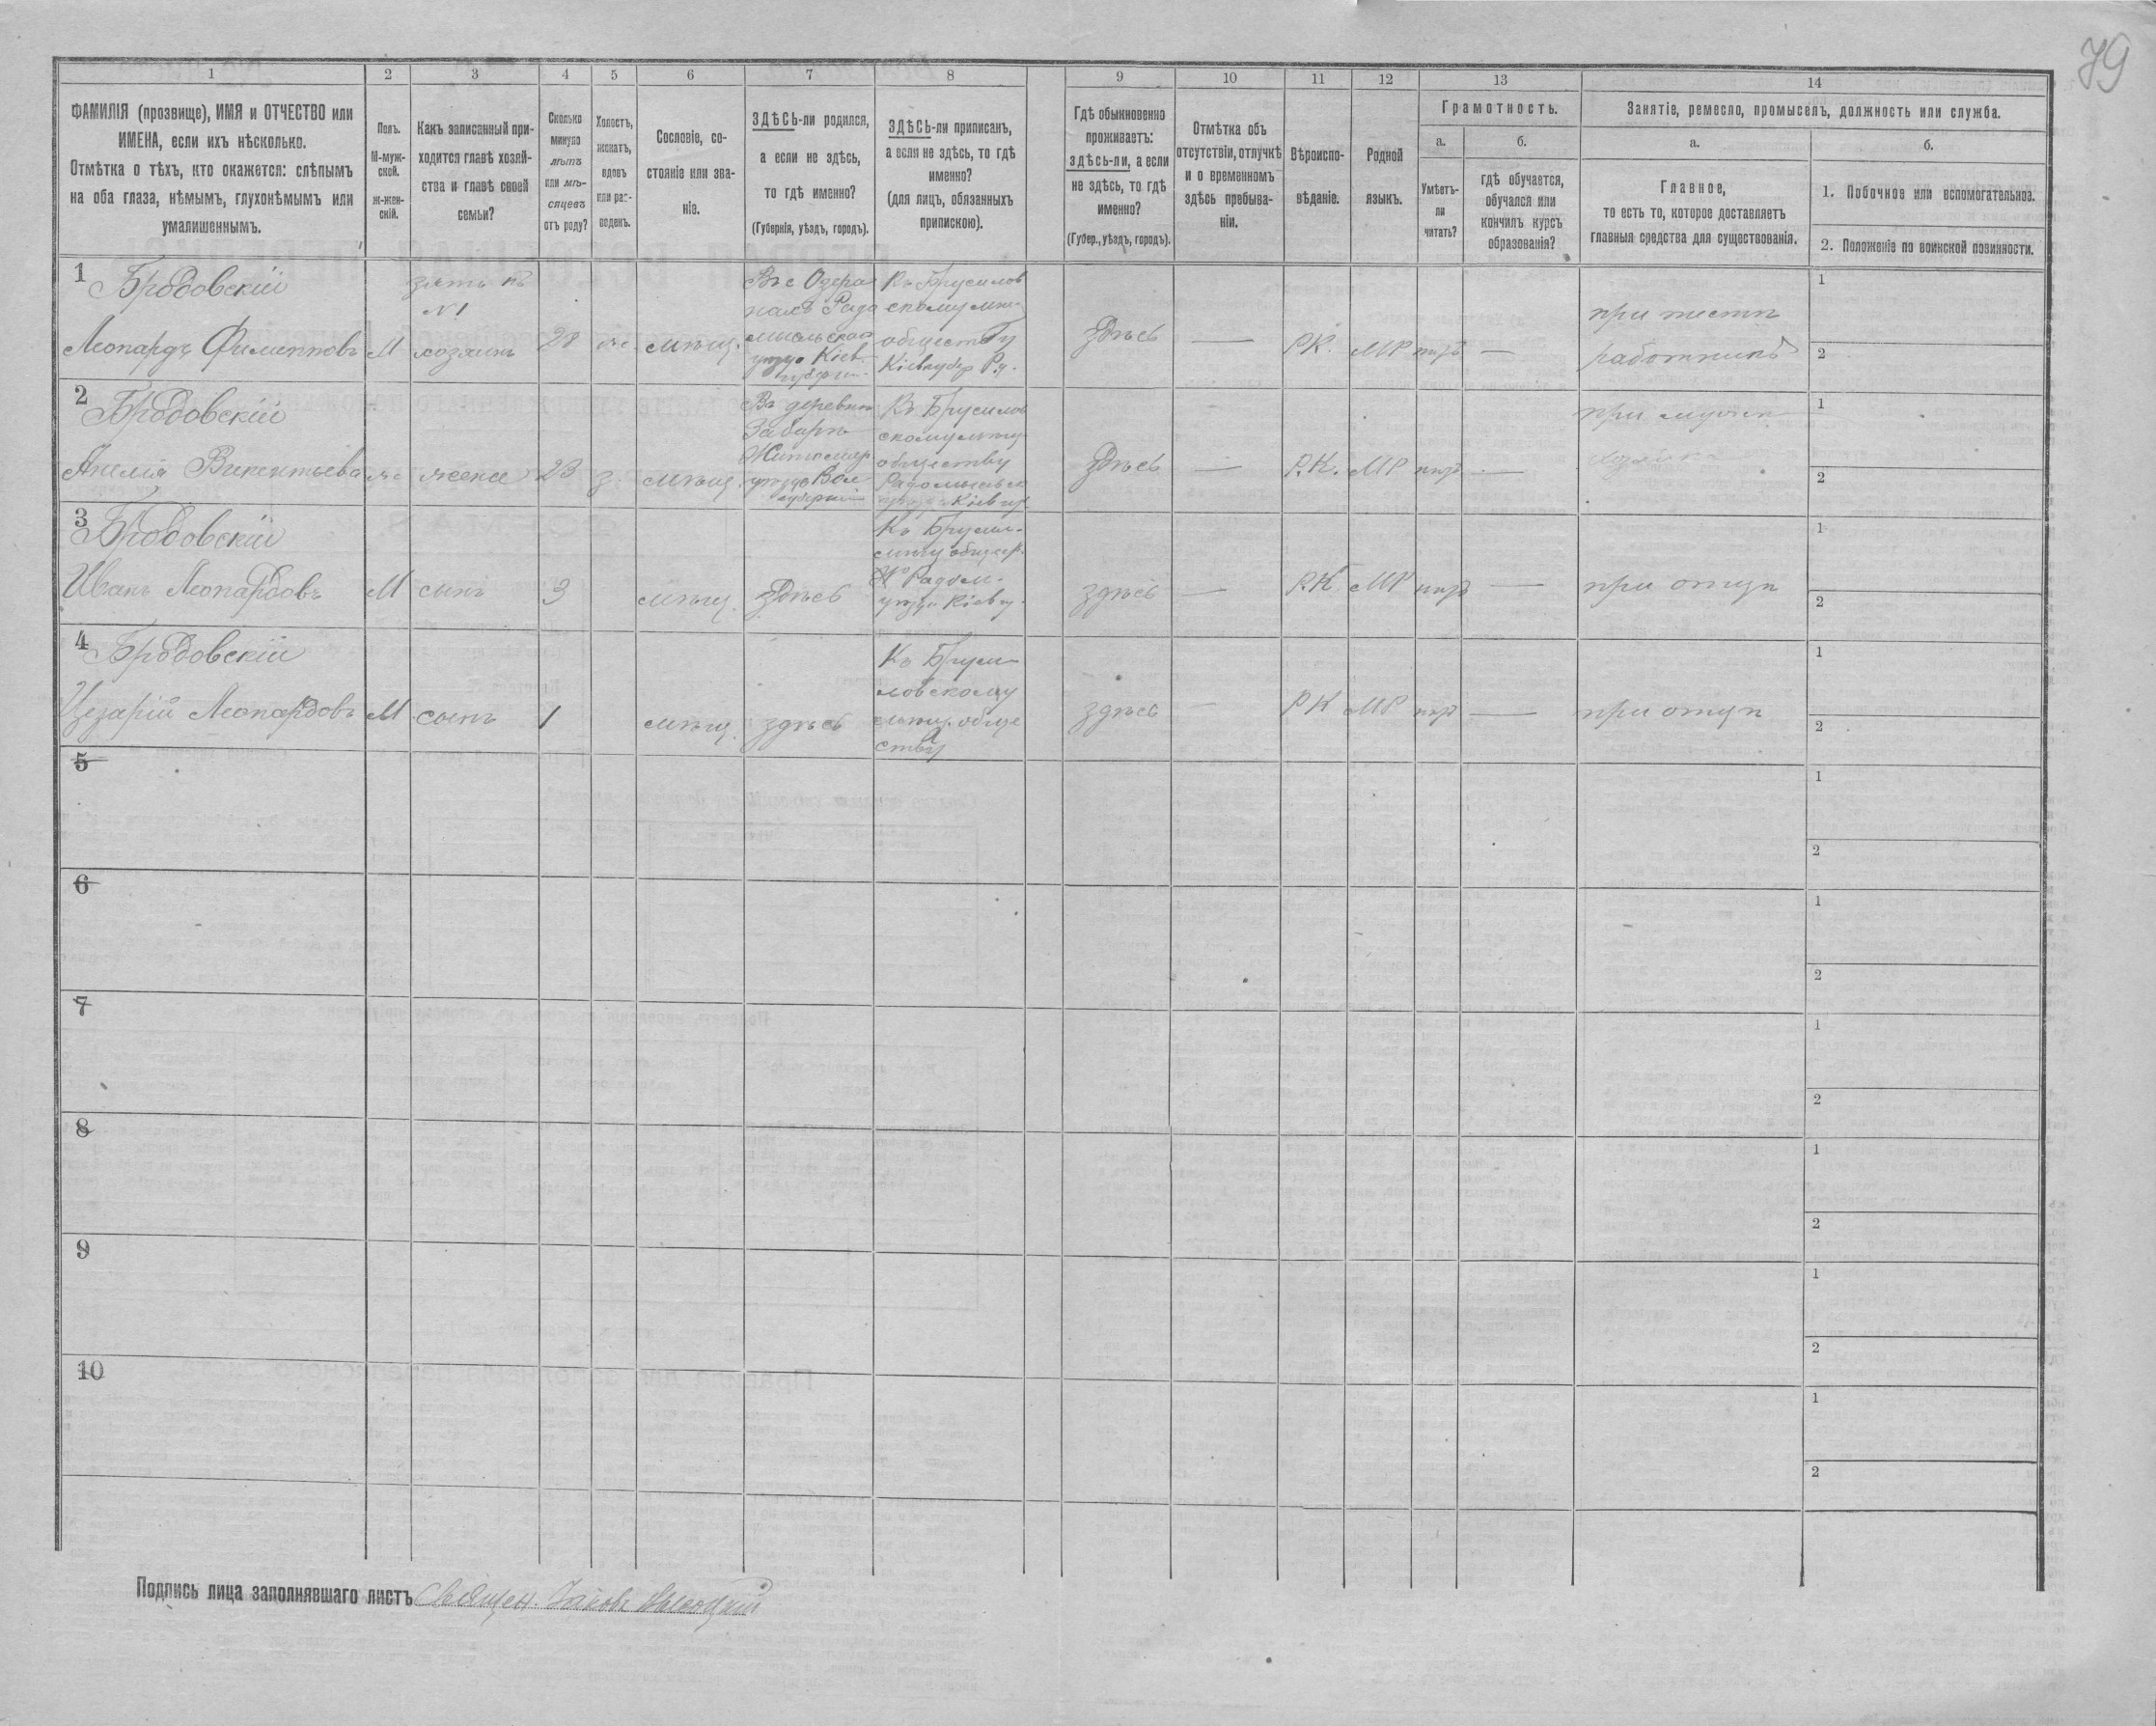 79
1
2
3
4
5
6
7
8
9
10
11
12
13
14
ФАМИЛІЯ (прозвище), ИМЯ и ОТЧЕСТВО или
ИМЕНА, если ихъ нѣсколько.
Отмѣтка о тѣхъ, кто окажется: слѣпымъ
на оба глаза, нѣмымъ, глухонѣмымъ или
умалишеннымъ.
Полъ.
М-муж-
ской.
Ж-жен-
скій.
Какъ записанный при-
ходится главѣ хозяй-
ства и главѣ своей
семьи?
Сколько
минуло
лѣтъ
или мѣ-
сяцевъ
отъ роду?
Холостъ,
женатъ,
вдовъ
или раз-
веденъ.
Сословіе, со-
стояніе или зва-
ніе.
ЗДѢСЬ-ли родился,
а если не здѣсь,
то гдѣ именно?
(Губернія, уѣздъ, городъ).
ЗДѢСЬ-ли приписанъ,
а если не здѣсь, то гдѣ
именно?
(для лицъ, обязанныхъ
припискою).
Гдѣ обыкновенно
проживаетъ:
здѣсь-ли, а если
не здѣсь, то гдѣ
именно?
(Губер., уѣздъ, городъ).
Отмѣтка объ
отсутствіи, отлучкѣ
и о временномъ
здѣсь пребыва-
ніи.
Вѣроиспо-
вѣданіе.
Родной
языкъ.
Грамотность.
а.
Умѣетъ-
ли
читать?
б.
гдѣ обучается,
обучался или
кончилъ курсъ
образованія?
Занятіе, ремесло, промыселъ, должность или служба.
а.
Главное,
то есть то, которое доставляетъ
главныя средства для существованія.
б.
1. Побочное или вспомогательное.
2. Положеніе по воинской повинности.
1
Бродовскій
Леонардъ Филипповъ
М
зять къ
№ 1
хозяинъ
28
мѣщ.
уѣзда Кіев.
Къ Брусилов
скому мѣщ.
обществу
Здѣсь
—
РК.
—
при тестѣ
работникъ
1
2
2
Бродовскій
Анелія Викентьева
жена
23
з.
мѣщ.
Въ деревнѣ
Житомир
уѣзда Вол
губерніи
Къ Брусилов
скому мѣщ
обществу
Здѣсь
—
Р.К.
—
при мужѣ
1
2
3
Бродовскій
Иванъ Леонардовъ
М
сынъ
3
мѣщ.
Здѣсь
Къ Брусил.
Радом.
здѣсь
—
Р.К
—
при отцѣ
1
2
4
Бродовскій
Цезарій Леонардовъ
М
сынъ
1
мѣщ.
здѣсь
Къ Бруси
ловскому
мѣщ. обще
ству
здѣсь
—
РК
—
при отцѣ
1
2
5
1
2
6
1
2
7
1
2
8
1
2
9
1
2
10
1
2
Подпись лица заполнявшаго листъ Священ. Іаковъ